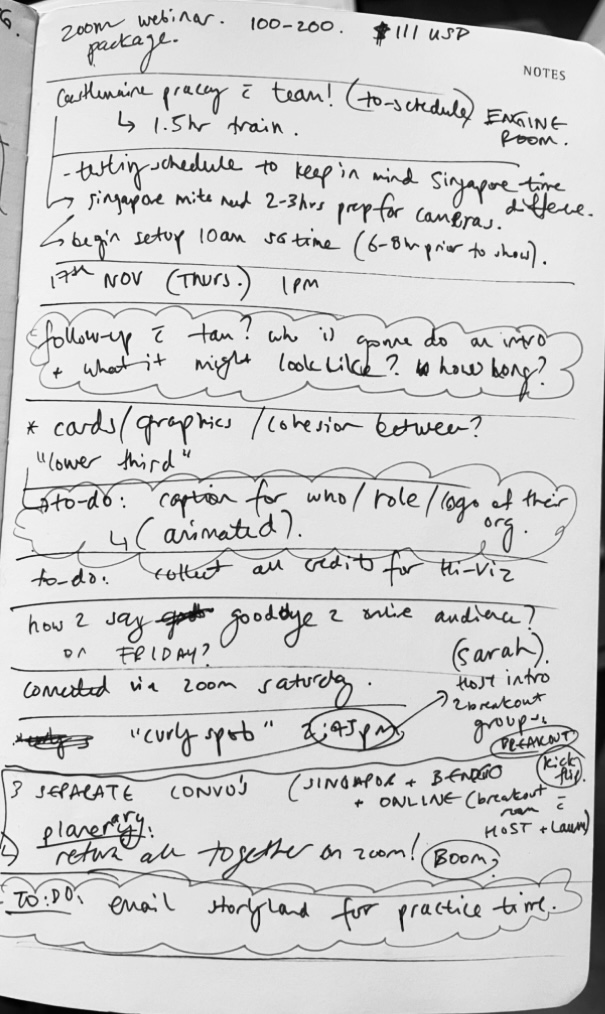 zoom webinar. 100-200. $111 USD
package.
NOTES
Castlemaine praccy c̄ team! (to-schedule) ENGINE ROOM.
↳ 1.5hr train.
- testing schedule to keep in mind Singapore time
→ Singapore mite need 2-3hrs prep for cameras. difference.
begin setup 10am SG time (6-8hr prior to show).
17th NOV (THURS.) 1PM
follow-up c̄ tan? who is gonna do an intro
+ what it might look like? how long?
* cards/graphics/cohesion between?
"lower third"
→ to-do: caption for who/role/logo of their org.
↳ (animated).
to-do: collect all credits for Hi-Viz
how 2 say goodbye 2 online audience?
on FRIDAY?
(Sarah).
Connected via zoom saturday.
Host intro
2 breakout
groups
"curly spot" 2:45pm
BREAKOUT
Kick flip.
3 SEPARATE CONVO'S (SINGAPOR + BENDIGO
+ ONLINE (breakout room c̄
HOST + Laura)
planerary:
return all together on zoom! BOOM?
TO:DO: email storyland for practice time.